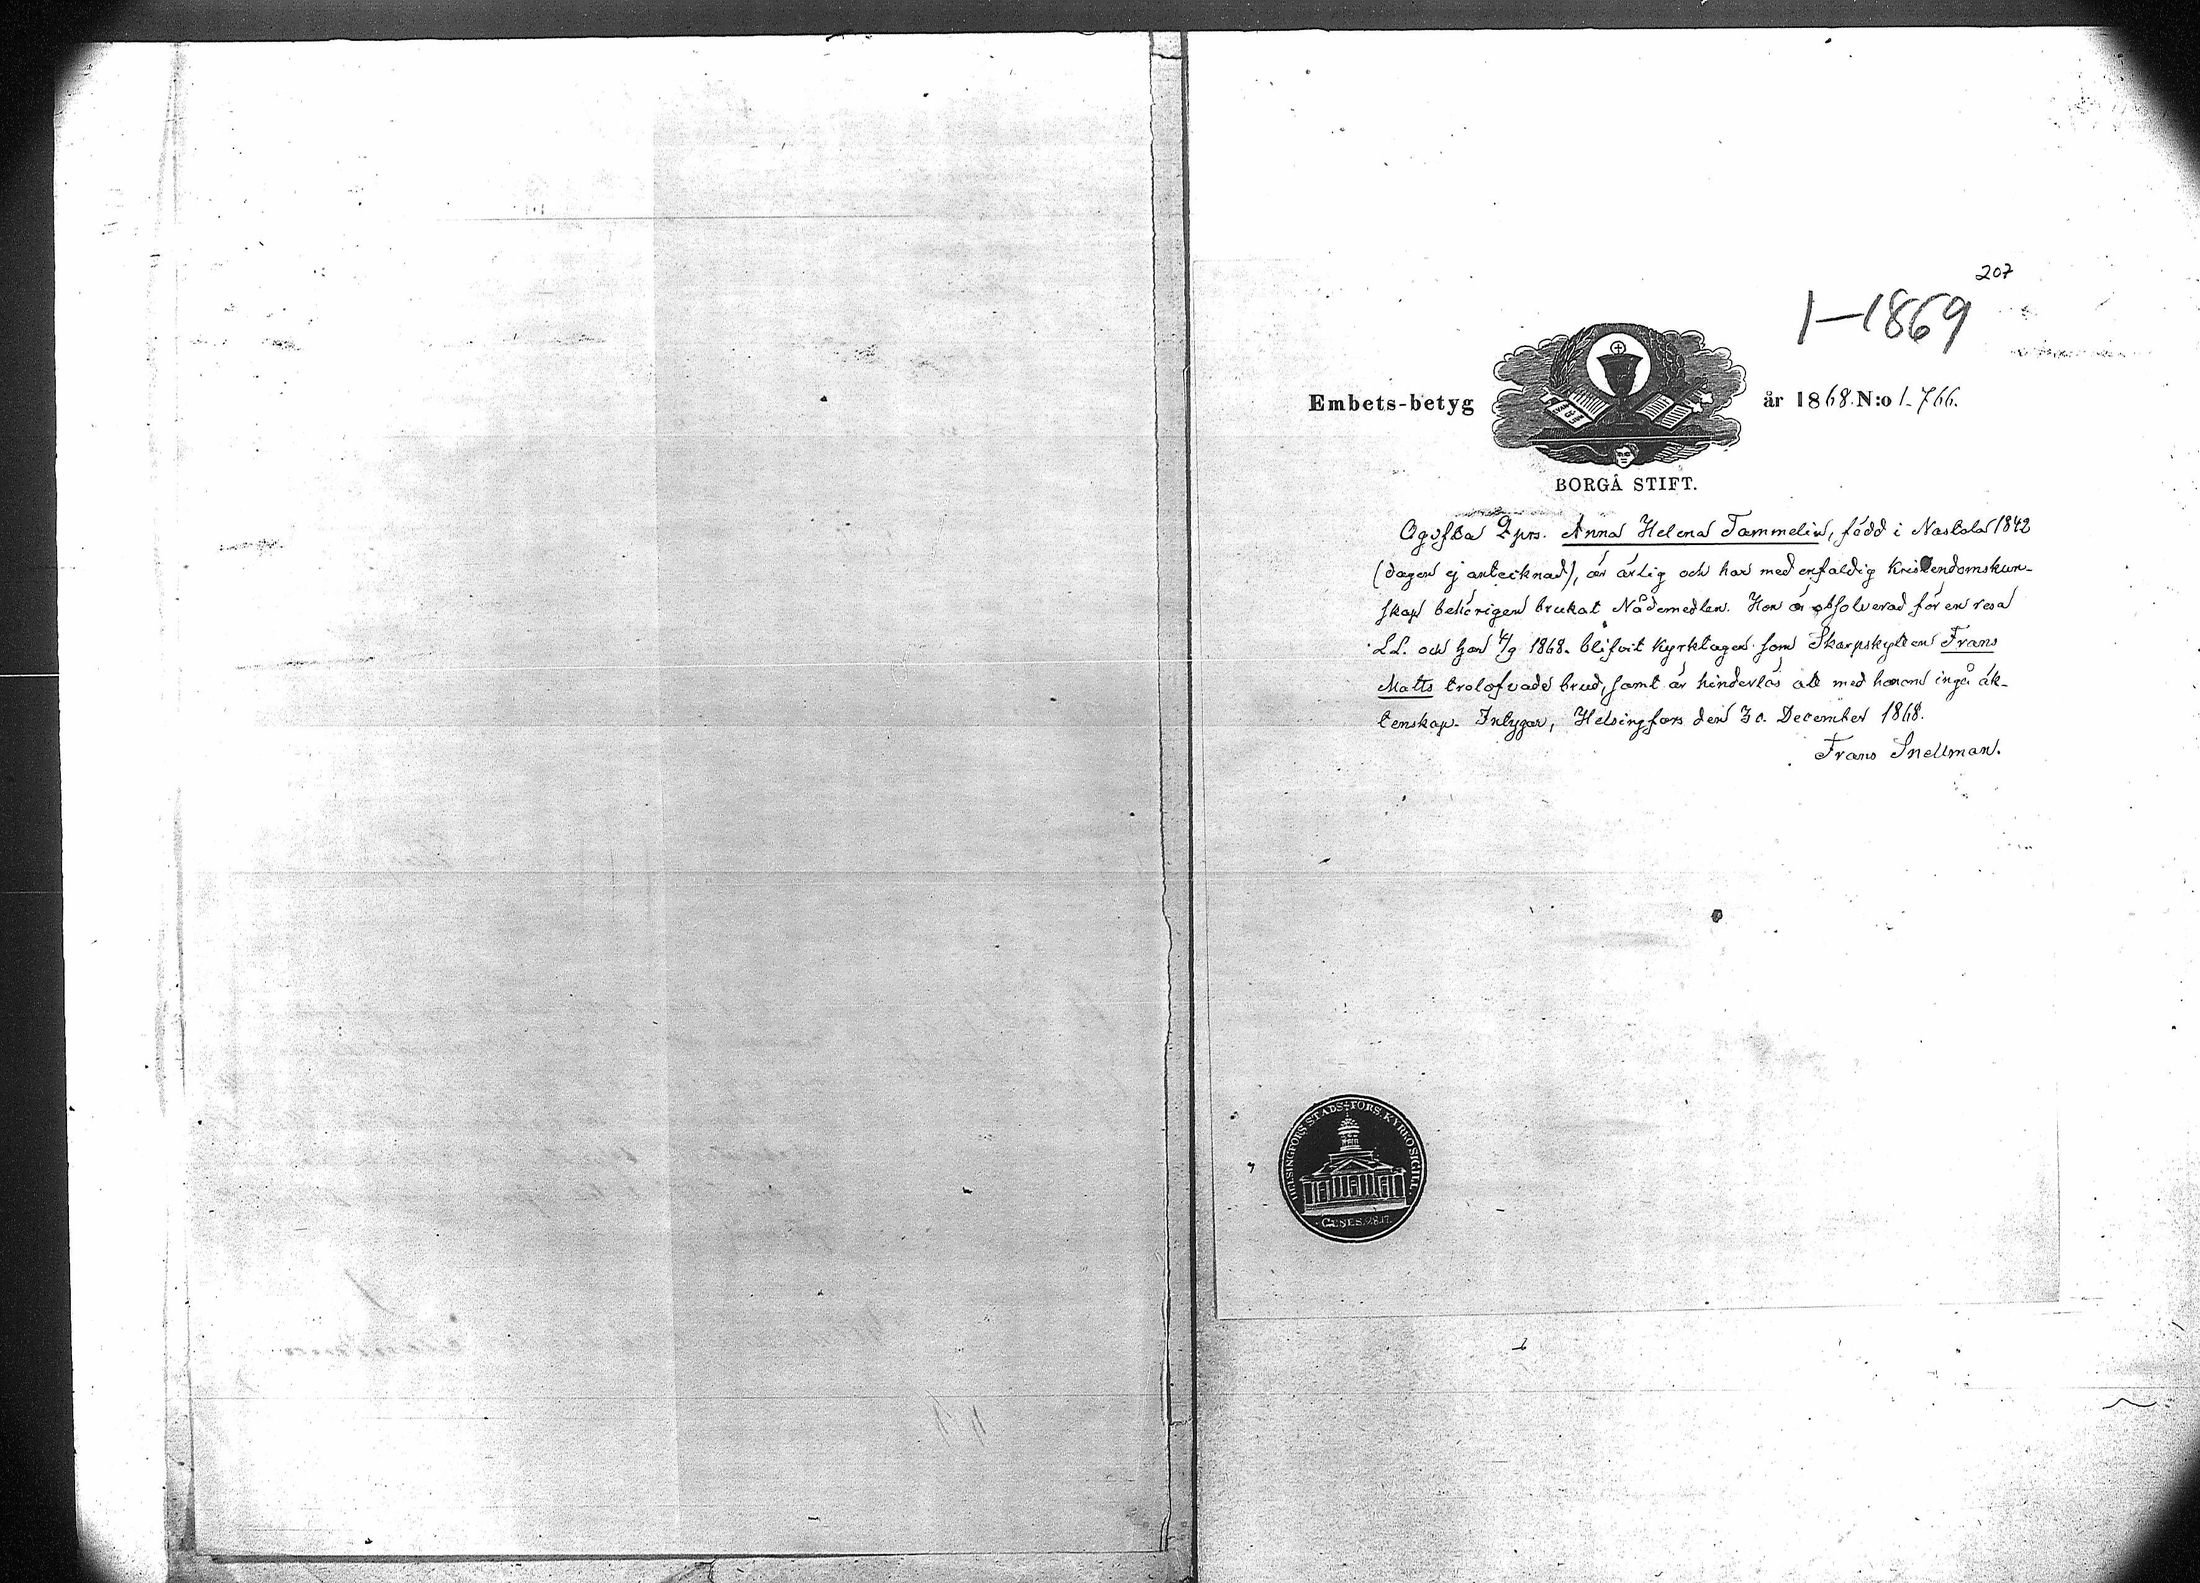 207
1-1869
Embets-betyg år 1868. N:o 1-766.
BORGÅ STIFT.
Ogifta Qprs. Anna Helena Tammelin, född i Nastola 1842
(dagen ej antecknad), är ärlig och har med enfaldig Kristendomskun-
skap behörigen brukat Nådemedlen. Hon är absolverad för en resa
LL. och har 4/9 1868. blifvit Kyrktagen som Skarpskytten Frans
Matts trolofvade brud, samt är hinderlös att med honom ingå äk-
tenskap. Intygar, Helsingfors den 30. December 1868.
Frans Snellman.
HELSINGFORS STADS-FÖRS. KYRKOSIGILL.
GENES. 28.17.